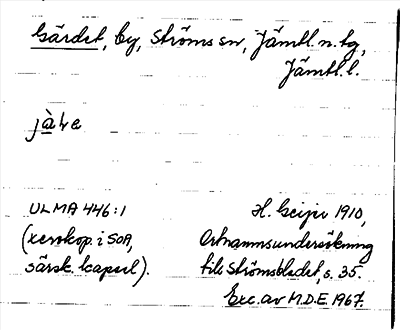 Gärdet, by, Ströms sn, Jämtl. n. tg,
Jämtl. l.
ULMA 446:1
(xerokop. i SOA,
särsk. kapsel).
H. Geijer 1910,
Ortnamnsundersökning
till Strömsbladet, s. 35.
Exc. av M.D.E. 1967.